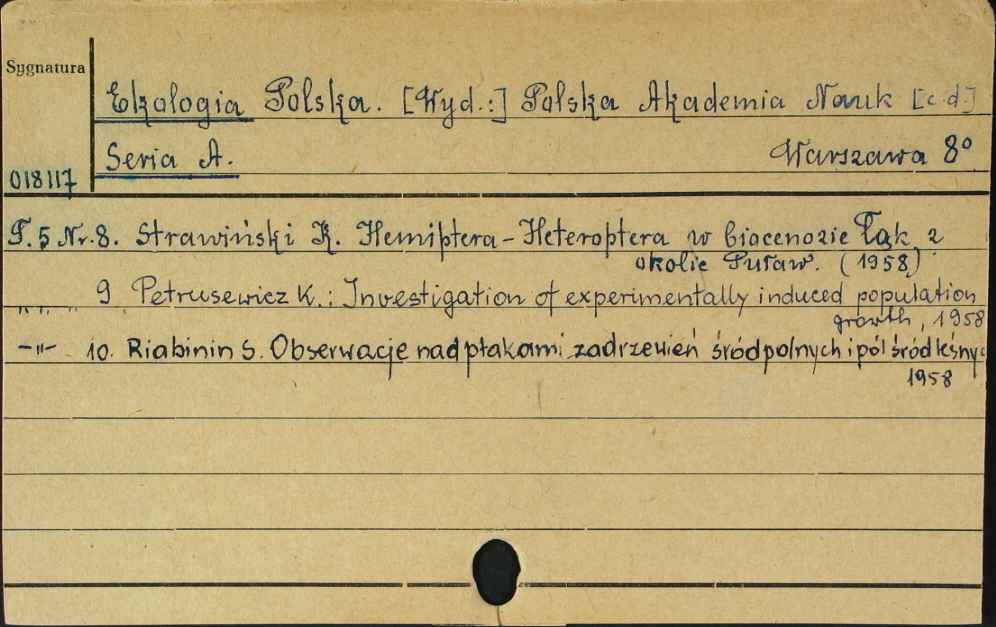 Sygnatura
Ekologia Polska. [Wyd.:] Polska Akademia Nauk [c.d.]
Seria A. Warszawa 8°
018117
T.5 Nr.8. Strawiński K. Hemiptera-Heteroptera w biocenozie Łąk z
okolic Puław. (1958)
9 Petrusewicz K.: Investigation of experimentally induced population
growth, 1958
-"- 10. Riabinin S. Obserwacje nad ptakami zadrzewień śródpolnych i pól śródleśnyc
1958